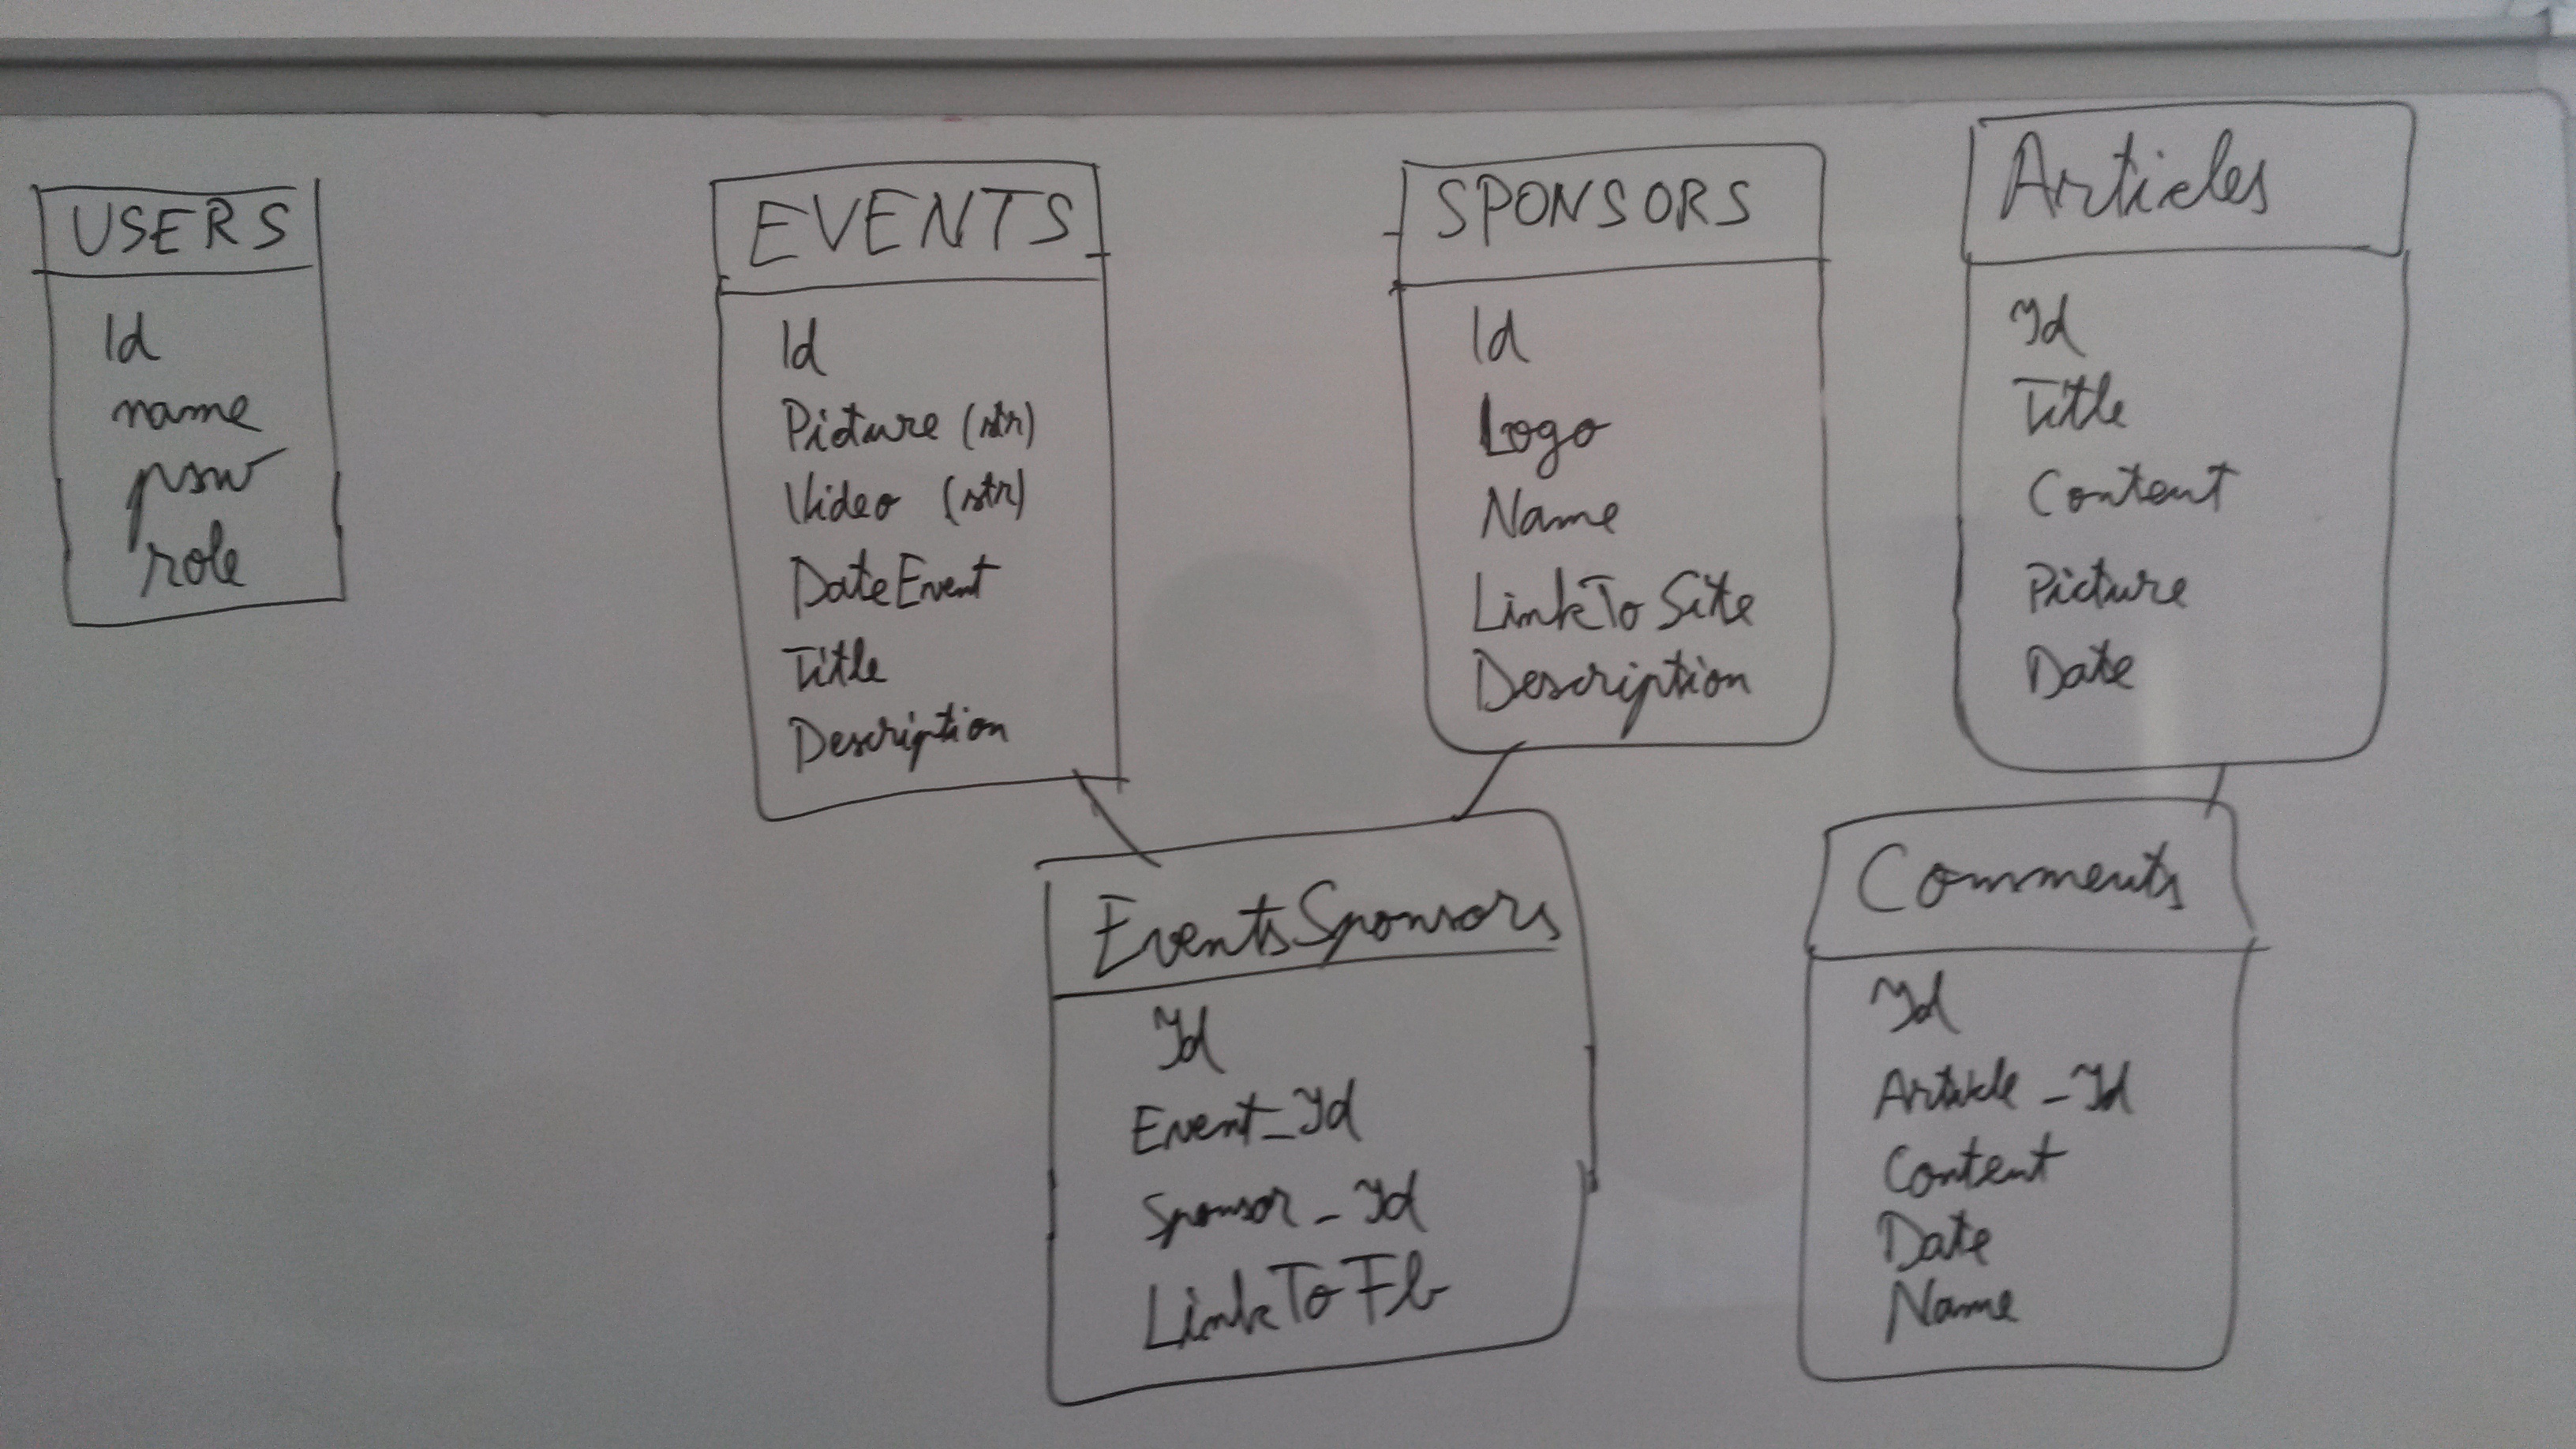 USERS
Id
name
psw
role
EVENTS
Id
Picture (str)
Video (str)
DateEvent
Title
Description
SPONSORS
Id
Logo
Name
LinkTo Site
Description
Articles
Id
Title
Content
Picture
Date
EventsSponsors
Id
Event_Id
Sponsor_Id
LinkToFb
Comments
Id
Article_Id
Content
Date
Name